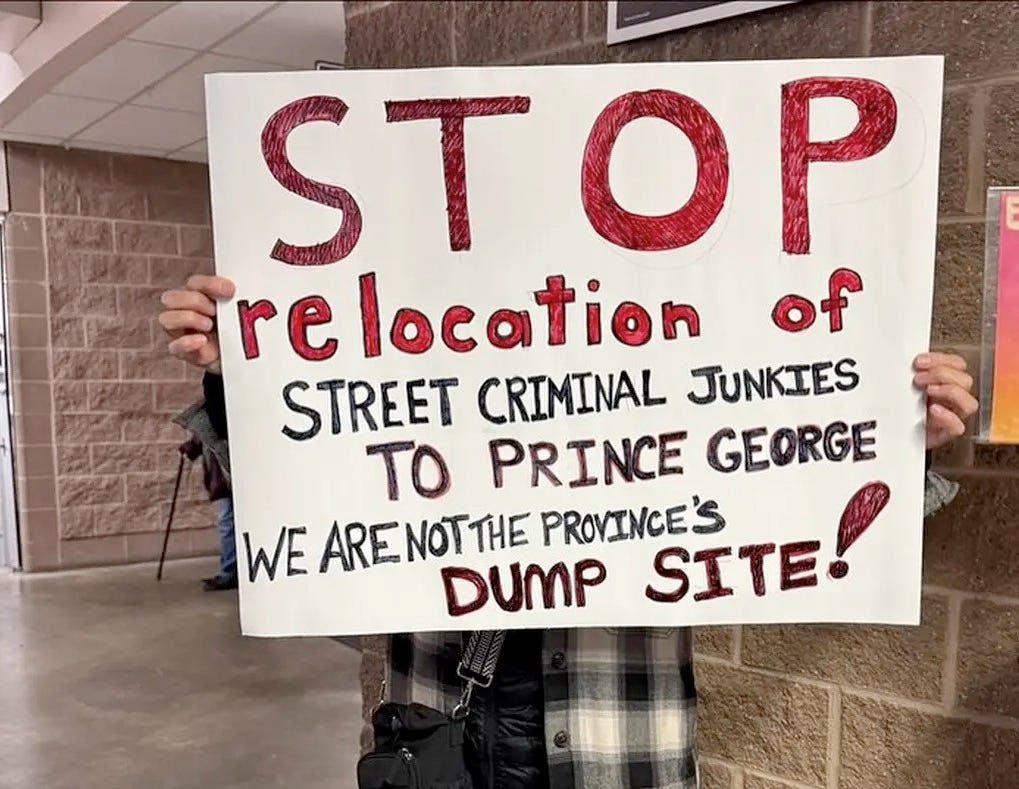 STOP
relocation of
STREET CRIMINAL JUNKIES
TO PRINCE GEORGE
WE ARE NOT THE PROVINCE'S
DUMP SITE!